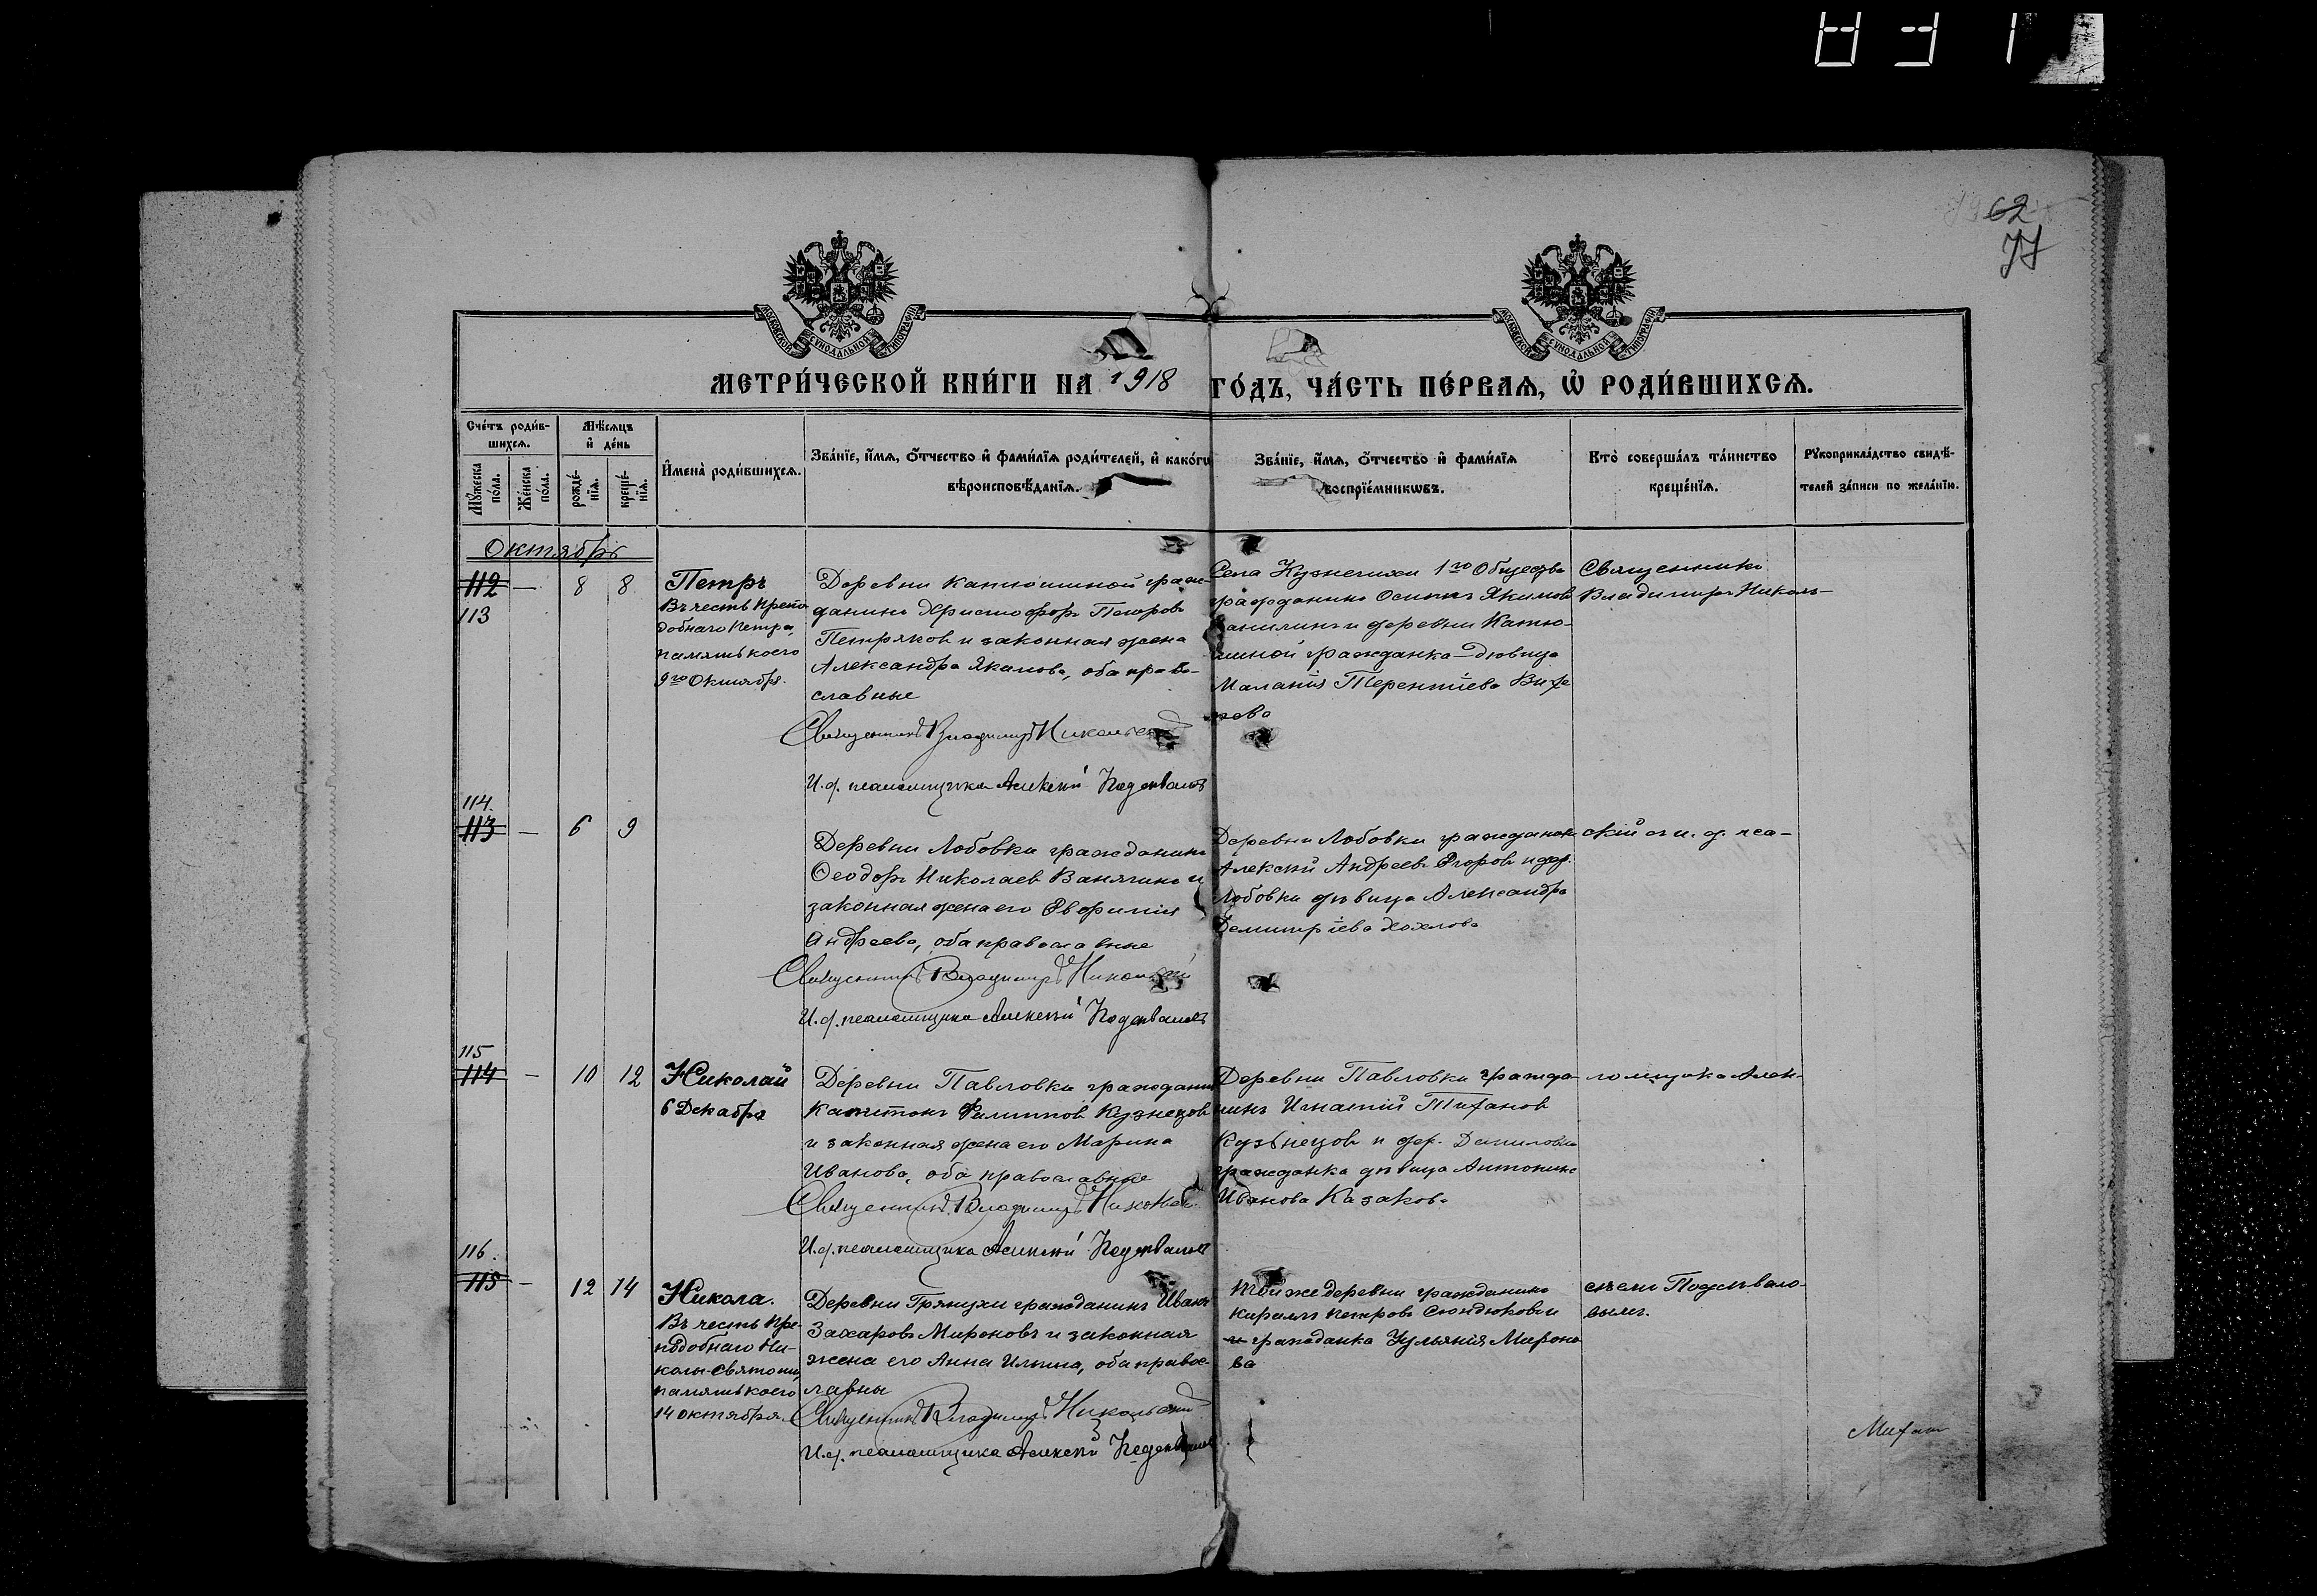 831
62
77
МОСКОВСКОЙ СѴНОДАЛЬНОЙ ТИПОГРАФІИ
МОСКОВСКОЙ СѴНОДАЛЬНОЙ ТИПОГРАФІИ
МЕТРИ́ЧЕСКОЙ КНИ́ГИ НА 1918 ГО́ДЪ, ЧА́СТЬ ПЕ́РВАѦ, Ѡ҆ РОДИ́ВШИХСѦ.
Сче́тъ роди́в-
шихсѧ.
Мꙋ́жеска
по́ла.
Же́нска
по́ла.
Мѣ́сѧцъ
и҆ де́нь
рожде́-
нїѧ.
креще́-
нїѧ.
И҆мена̀ роди́вшихсѧ.
Зва́нїе, и҆́мѧ, ѻ҆́тчество и҆ фами́лїѧ роди́телей, и҆ како́гѡ
вѣроисповѣ́данїѧ.
Зва́нїе, и҆́мѧ, ѻ҆́тчество и҆ фами́лїѧ
воспрїе́мникѡвъ.
Кто̀ соверша́лъ та́инство
креще́нїѧ.
Рꙋкоприкла́дство свидѣ́-
телей за́писи по жела́нїю.
Октябрь
112 — 8 8
113
Петръ
Въ честь Препо
добнаго Петра,
память коего
9го Октября.
Деревни Катюшиной граж-
данинъ Христофоръ Петровъ
Петряков и законная жена
Александра Якимова, оба право-
славные
Священникъ Владимиръ Никольскій
И.д. псаломщика Алексѣй
Села 1го Общества
гражданинъ Осипъ Якимов
и деревни Катю-
шиной гражданка-дѣвица
Маланія Терентіева
Священникъ
Владимиръ Николь-
114.
113 — 6 9
Деревни Лобовки гражданинъ
Ѳеодоръ Николаев Ванягинъ и
законная жена его Евфимія
Андреева, оба православные
Священникъ Владимиръ Никольскій
И.д. псаломщика Алексѣй
Деревни Лобовки гражданинъ
Алексѣй Андреевъ Егоров и дер.
Лобовки дѣвица Александра
Демитріева Хохлова
скій съ и. д. пса-
115
114 — 10 12
Николай
6 Декабря
Деревни Павловки гражданинъ
Капитонъ Филиппов Кузнецов
и законная жена его Марина
Иванова, оба православные
Священникъ Владимиръ
И.д. псаломщика Алексѣй
Деревни Павловки гражда-
нинъ Игнатій Тихонов
Кузьнецовъ и дер. Даниловки
гражданка дѣвица Антонина
Иванова Казакова
ломщика Алек-
116.
115 — 12 14
Никола.
Въ честь Пре-
подобнаго Ни-
колы-Святоши,
память коего
14 октября.
Деревни Грязнухи гражданинъ Иванъ
Захаровъ Мироновъ и законная
жена его Анна Ильина, оба правос-
лавны
Священникъ Владимиръ Никольскій
И.д. псаломщика Алексѣй
Той же деревни гражданинъ
Кириллъ Петровъ Сюндюков и
и гражданка Ульянія Мироно
ва
сѣемъ Подхвато-
вымъ.